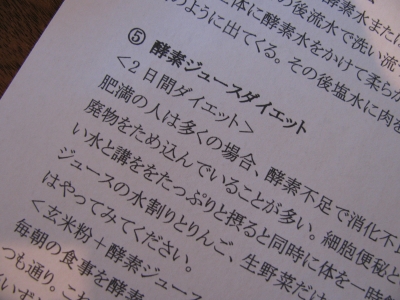 酵素水また
体に酵素水をかけて柔らか
の後流水で洗い流
のように出てくる。その後塩水に肉を
⑤ 酵素ジュースダイエット
<2日間ダイエット>
肥満の人は多くの場合、酵素不足で消化不
廃物をため込んでいることが多い。細胞便秘と
い水と講ををたっぷりと摂ると同時に体を一時
ジュースの水割りとりんご、生野菜だ
はやってみてください。
<玄米粉+酵素ジュー
毎朝の食事を酵素
つも通り。これ
いず